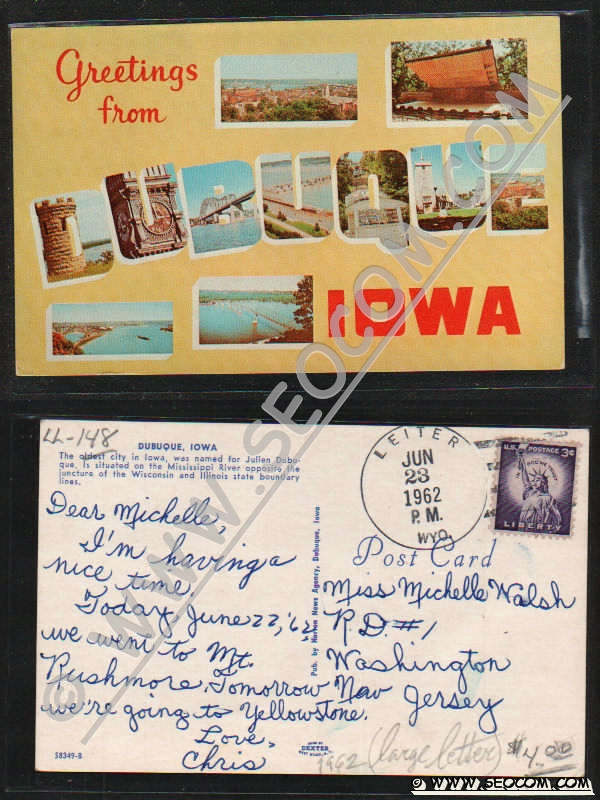 Greetings
from
DUBUQUE
IOWA
LL-148
DUBUQUE, IOWA
The oldest city in Iowa, was named for Julien Dubu-
que. Is situated on the Mississippi River opposite the
juncture of the Wisconsin and Illinois state boundary
lines.
Dear Michelle,
I'm having a
nice time.
Today, June 22, '62,
we went to Mt.
Rushmore. Tomorrow
we're going to Yellowstone.
Love,
Chris
58349-B
Pub. by News Agency, Dubuque, Iowa
DEXTER
LEITER
JUN
23
1962
P.M.
WYO.
U.S. POSTAGE 3¢
IN GOD WE TRUST
LIBERTY
Post Card
Miss Michelle Walsh
R.D. #1
Washington
New Jersey
1962 (large letter) $4.00
© WWW.SEOCOM.COM
© WWW.SEOCOM.COM